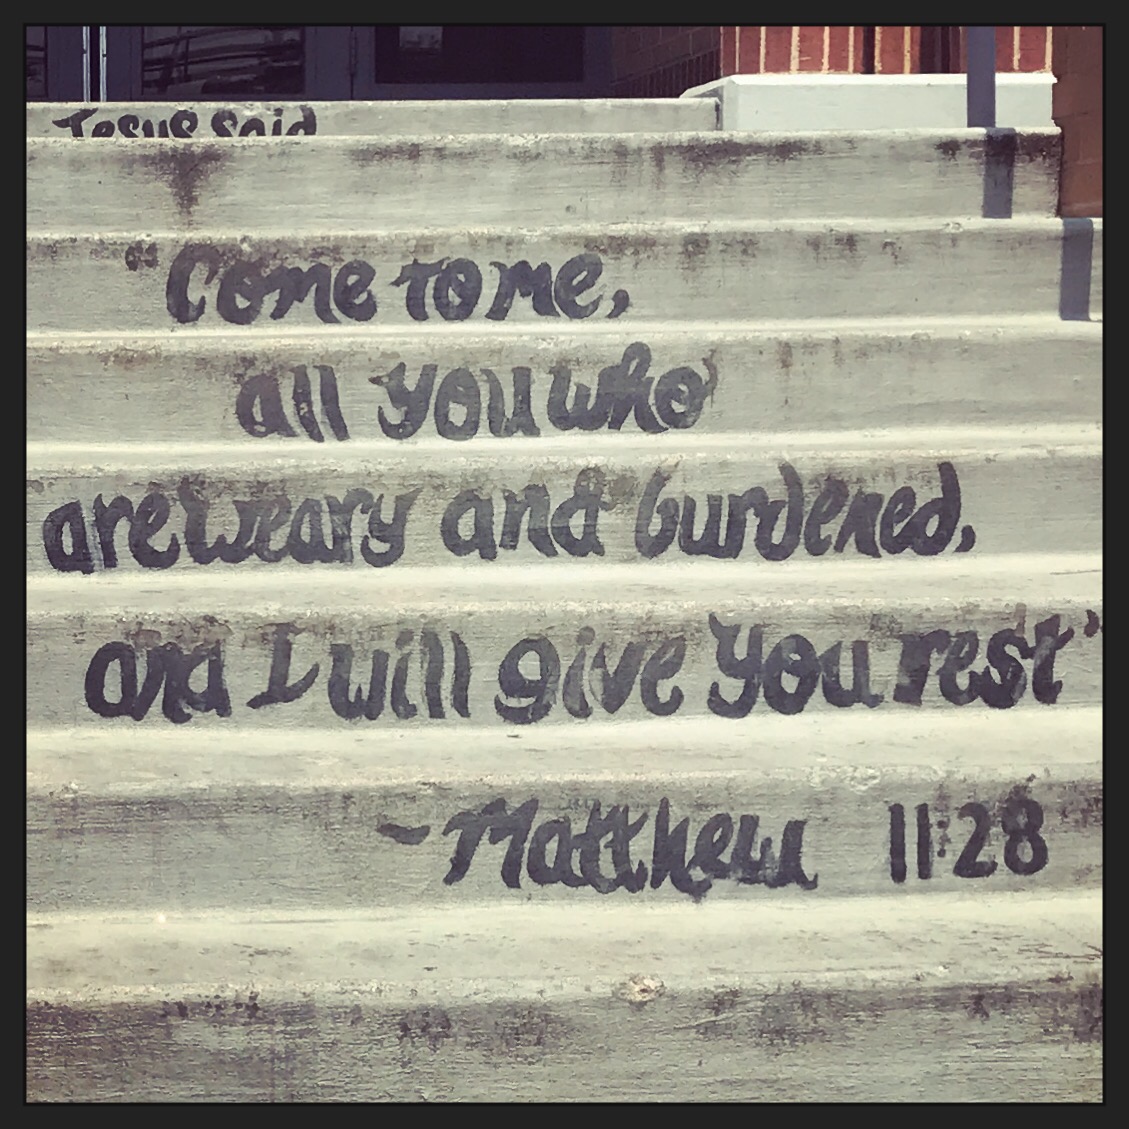 Jesus said
"Come to me,
all you who
are weary and burdened,
and I will give you rest"
~Matthew 11:28